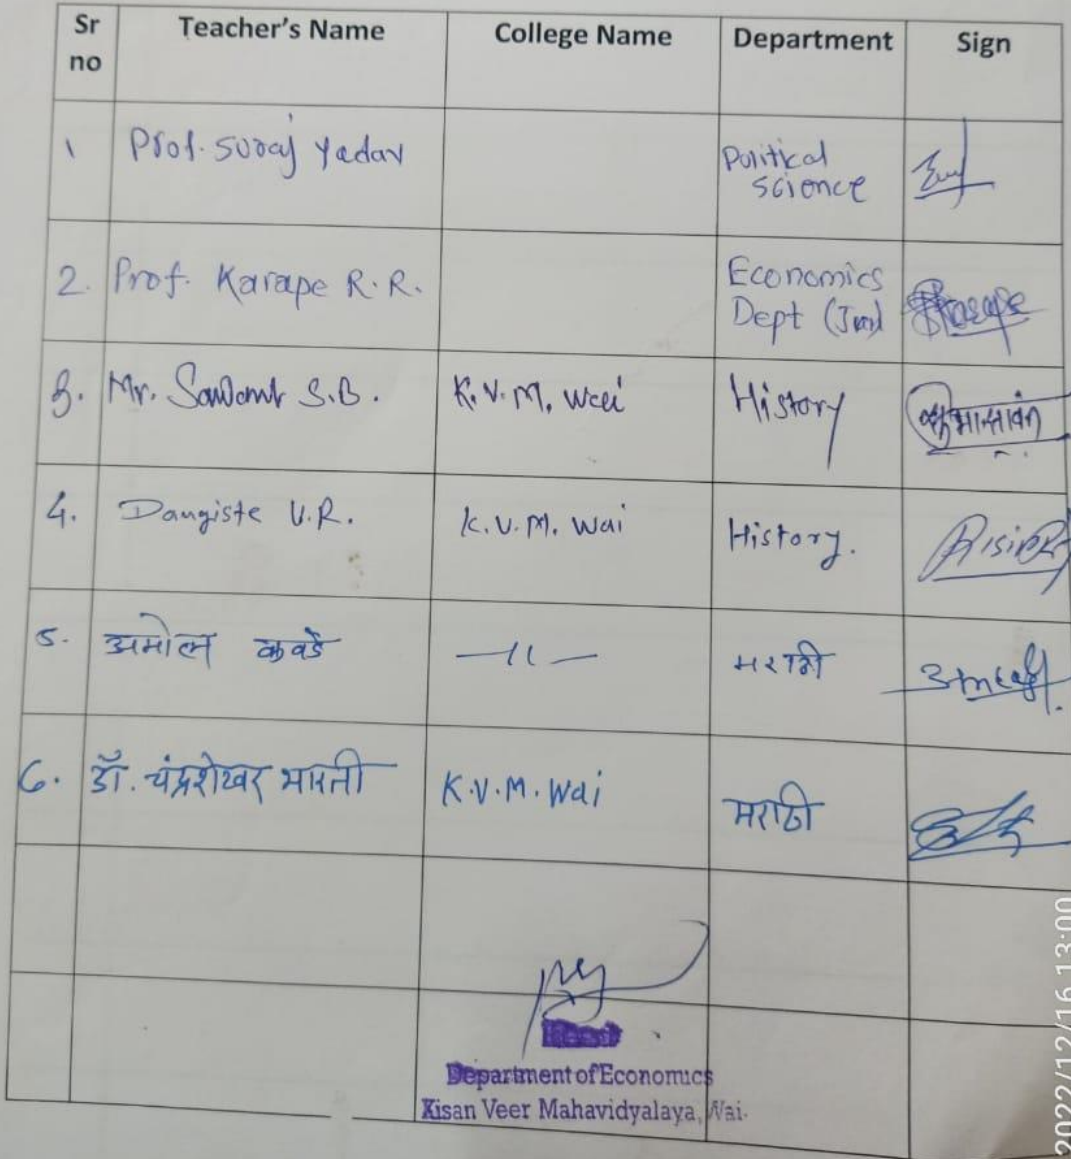 Sr no Teacher's Name College Name Department Sign
1 Prof. Suraj Yadav Political science
2. Prof. Karape R.R. Economics Dept (Jun)
3. Mr. Sawant S.B. K.V.M. Wai History
4. Dangiste V.R. K.V.M. Wai History.
5. अमोल कवडे —11— मराठी
6. डॉ. चंद्रशेखर भारती K.V.M. Wai मराठी
Head
Department of Economics
Kisan Veer Mahavidyalaya, Wai.
2022/12/16 13:00